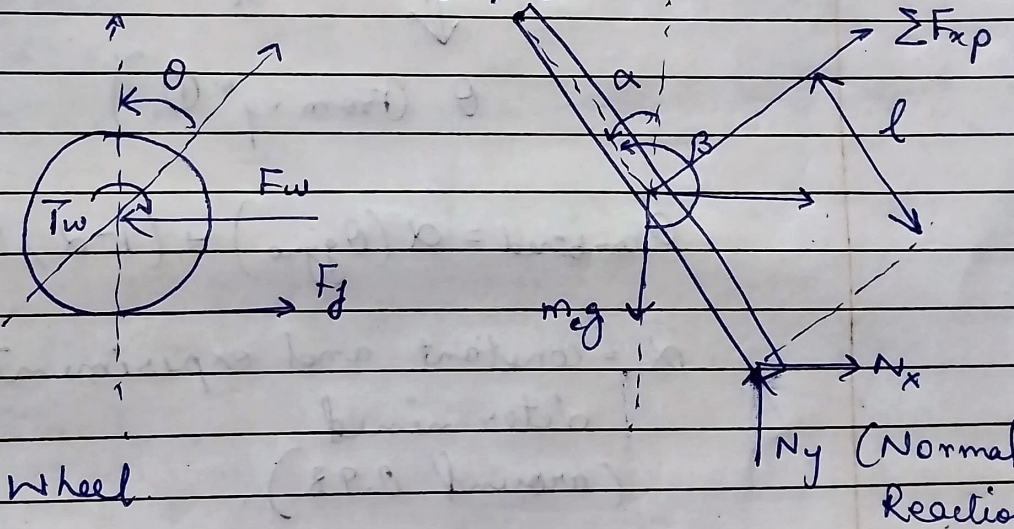 θ
Tw
Fw
Ff
Wheel
ΣFxp
α
β
l
mcg
Nx
Ny (Normal
Reactio